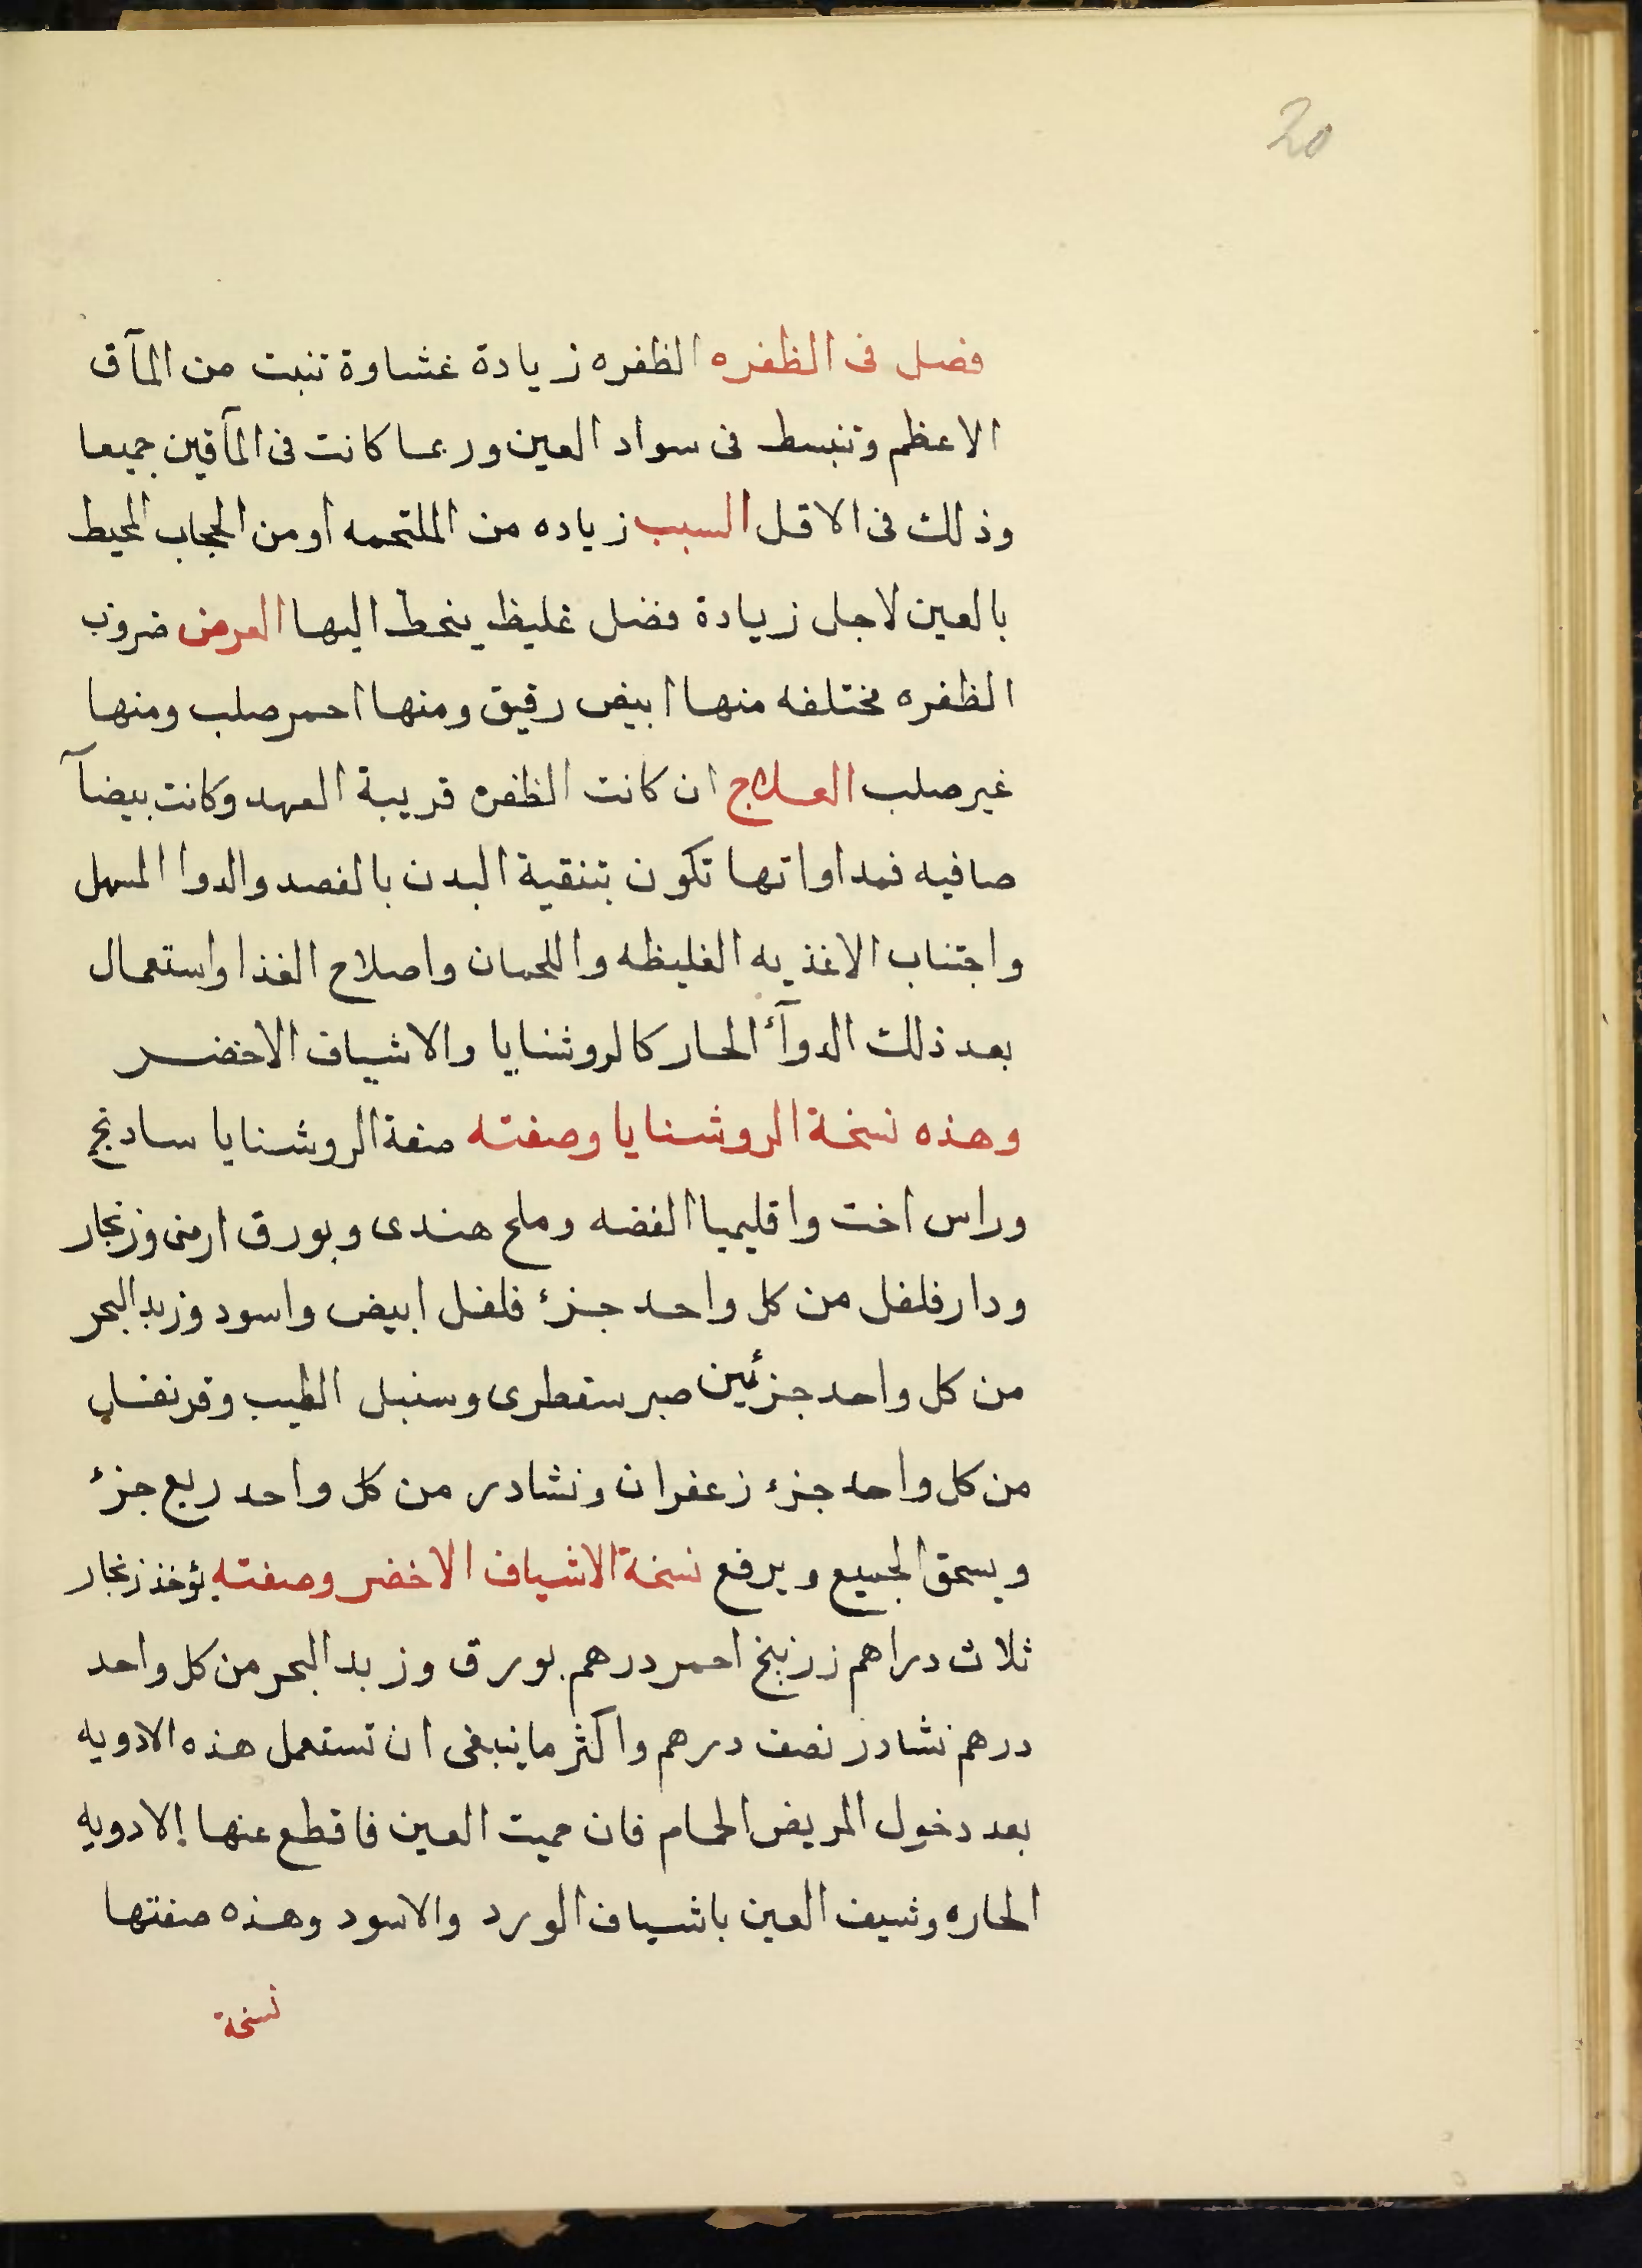 20
فصل فى الظفره الظفره زيادة غشاوة تنبت من المآق
الاعظم وتنبسط فى سواد العين وربما كانت فى المآقين جميعا
وذلك فى الاقل السبب زياده من الملتحمه اومن الحجاب المحيط
بالعين لاجل زيادة فضل غليظ ينحط اليها العرض ضروب
الظفره مختلفه منها ابيض رقيق ومنها احمر صلب ومنها
غير صلب العلاج ان كانت الظفره قريبة العهد وكانت بيضآ
صافيه فمداواتها تكون بتنقية البدن بالفصد والدوا المسهل
واجتناب الاغذيه الغليظه واللحمان واصلاح الغذا واستعمال
بعد ذلك الدوآئ الحار كالروشنايا والاشياف الاخضر
وهذه نسخة الروشنايا وصفته صفة الروشنايا سادنج
وراس اخت واقليميا الفضه وملح هندى وبورق ارمنى وزنجار
ودارفلفل من كل واحد جزئ فلفل ابيض واسود وزبد البحر
من كل واحد جزئين صبر سقطرى وسنبل الطيب وقرنفل
من كل واحد جزء زعفران ونشادر من كل واحد ربع جزئ
ويسحق الجميع ويرفع نسخة الاشياف الاخضر وصفته يؤخذ زنجار
ثلاث دراهم زرنيخ احمر درهم بورق وزبد البحر من كل واحد
درهم نشادر نصف درهم واكثر ما ينبغى ان تستعمل هذه الادويه
بعد دخول المريض الحمام فان حميت العين فاقطع عنها الادويه
الحاره وشيف العين باشياف الورد والاسود وهذه صفتها
نسخة